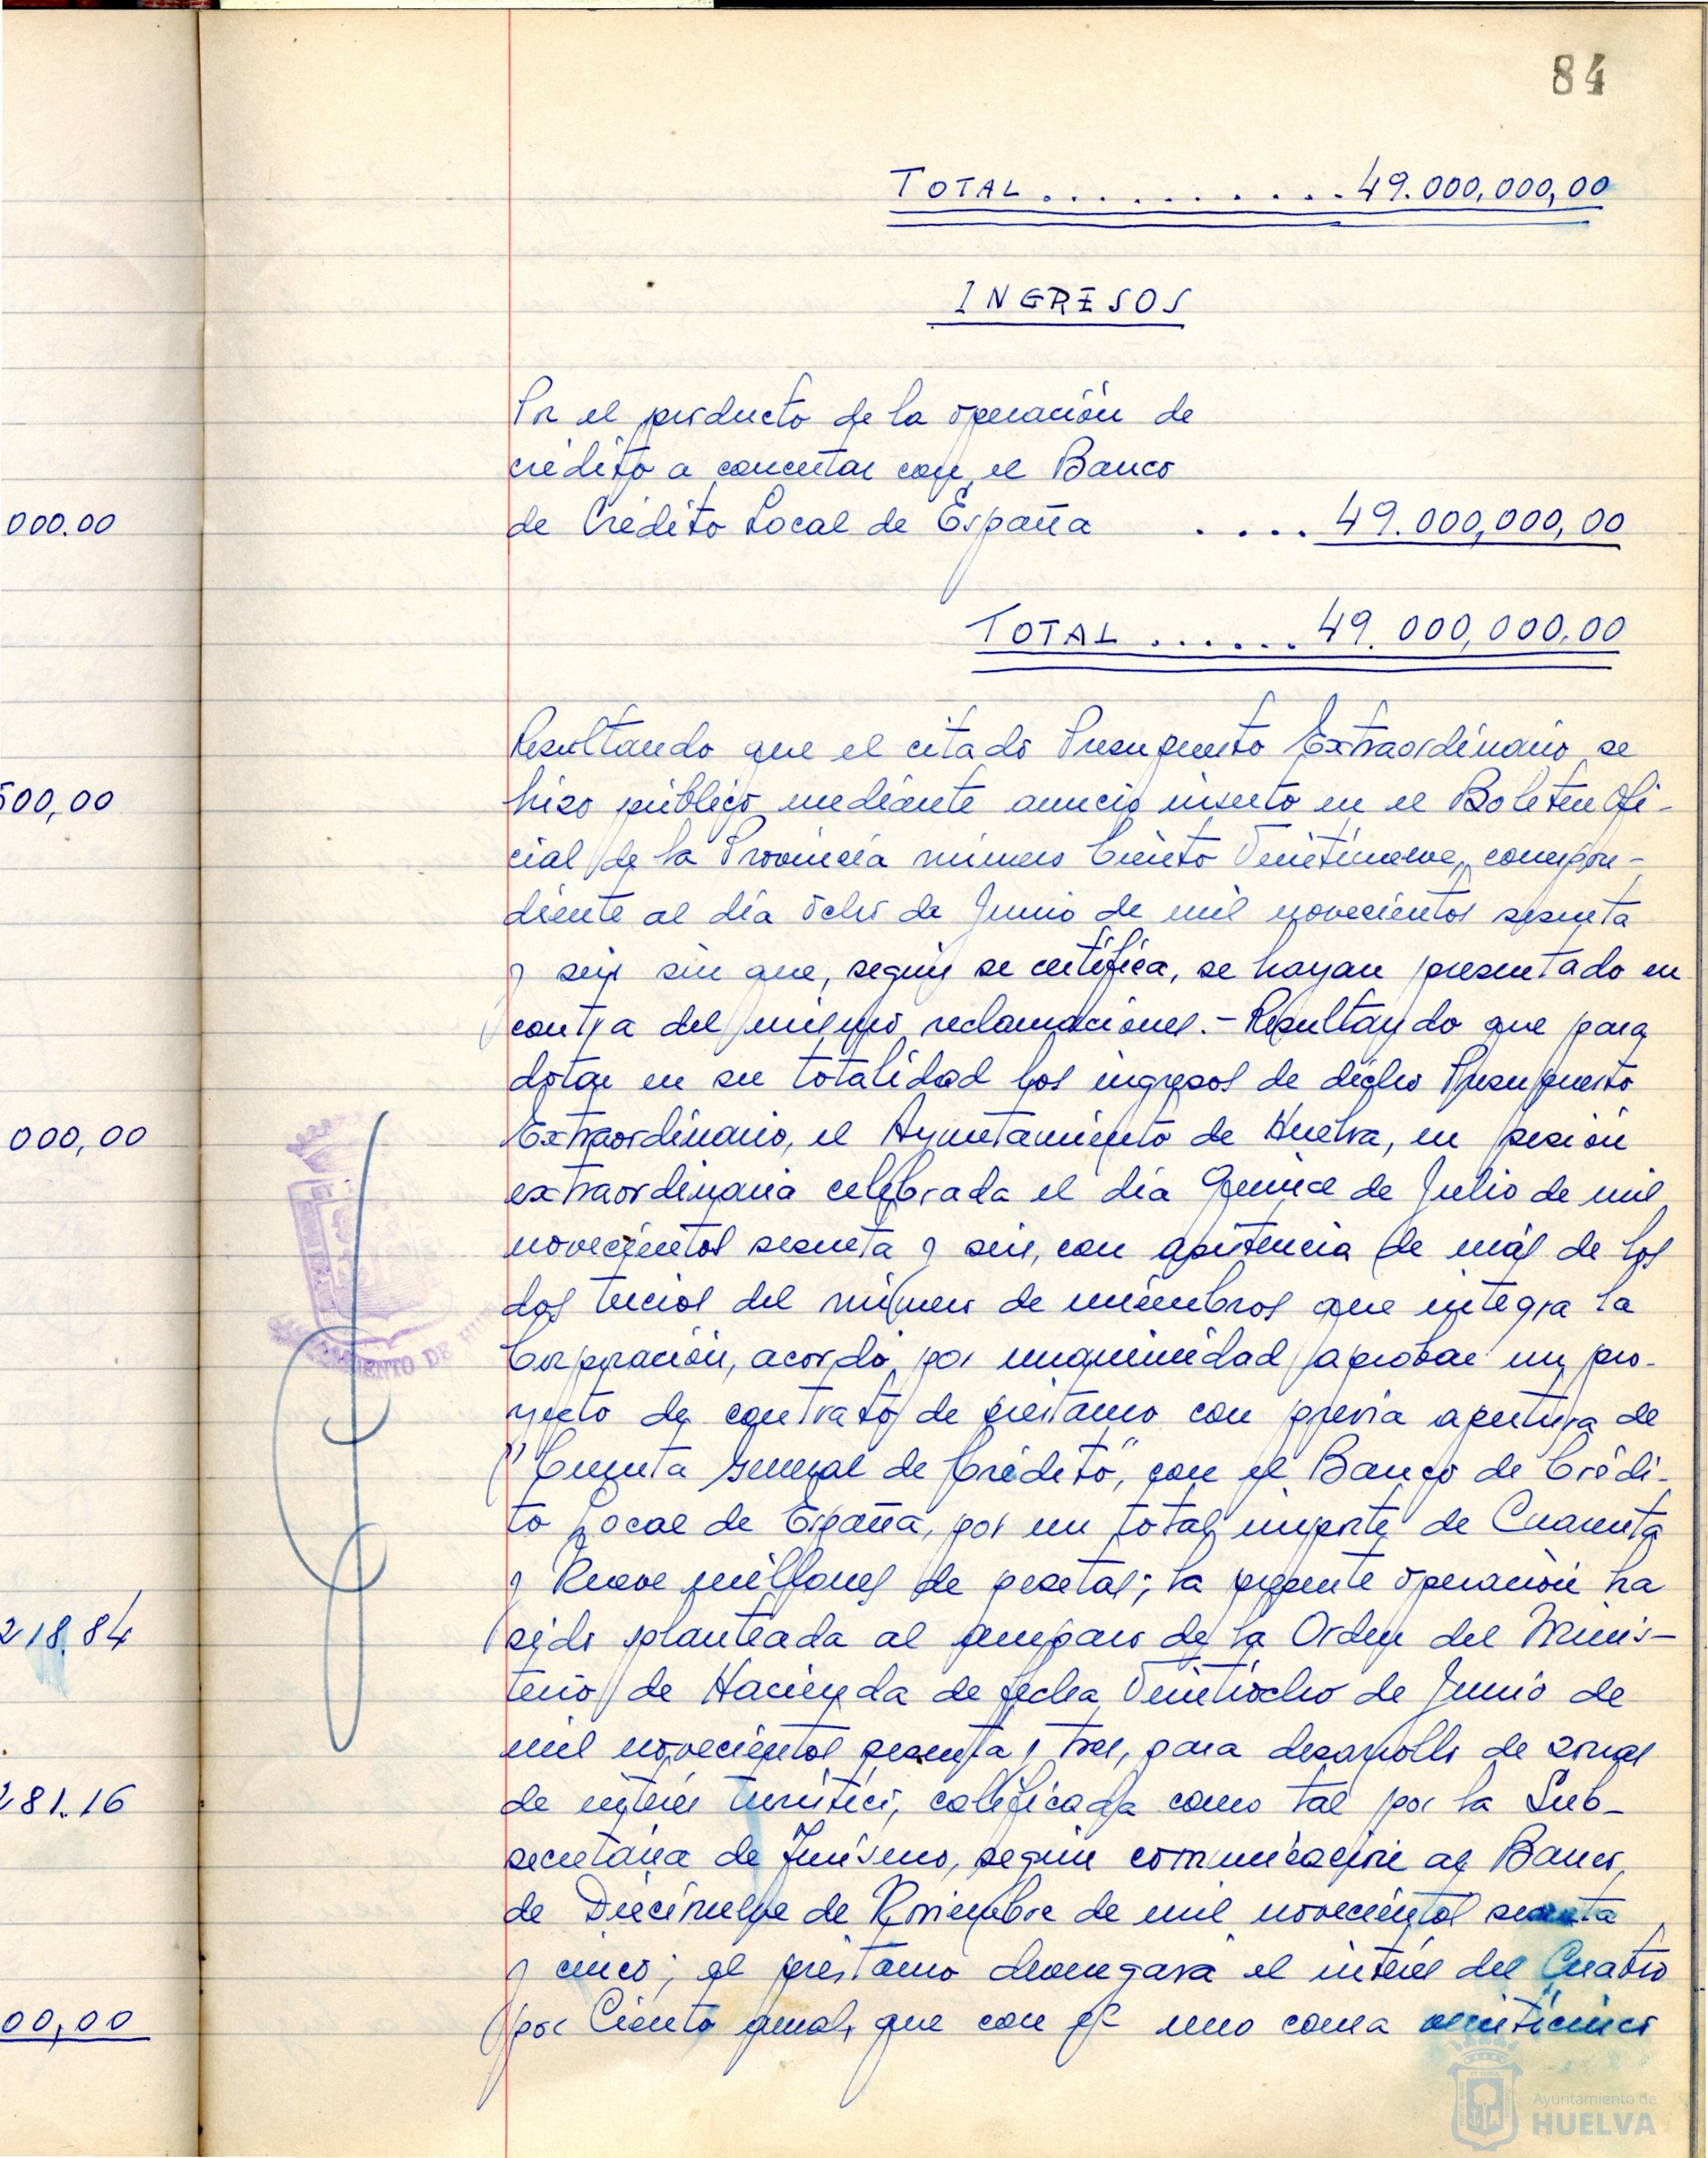 84
TOTAL .......... 49.000,000,00
INGRESOS
Por el producto de la operación de
crédito a concertar con el Banco
000.00
de Crédito Local de España .... 49.000,000,00
TOTAL ...... 49.000,000.00
Resultando que el citado Presupuesto Extraordinario se
hizo público mediante anuncio inserto en el Boletín Ofi-
500,00
cial de la Provincia número Ciento Veintinueve, correspon-
diente al día ocho de Junio de mil novecientos sesenta
y seis sin que, según se certifica, se hayan presentado en
contra del mismo reclamaciones.- Resultando que para
dotar en su totalidad los ingresos de dicho Presupuesto
000,00
Extraordinario, el Ayuntamiento de Huelva, en sesión
extraordinaria celebrada el día Quince de Julio de mil
novecientos sesenta y seis, con asistencia de más de los
dos tercios del número de miembros que integra la
Corporación, acordó por unanimidad aprobar un pro-
yecto de contrato de préstamo con previa apertura de
"Cuenta General de Crédito", con el Banco de Crédi-
to Local de España, por un total importe de Cuarenta
y Nueve millones de pesetas; la presente operación ha
218.84
sido planteada al amparo de la Orden del Minis-
terio de Hacienda de fecha Veintiocho de Junio de
mil novecientos sesenta y tres, para desarrollo de zonas
281.16
de interés turístico, calificada como tal por la Sub-
secretaría de Turismo, según comunicación al Banco,
de Diecinueve de Noviembre de mil novecientos sesenta
y cinco; el préstamo devengará el interés del Cuatro
00,00
por Ciento anual, que con el uno coma veinticinco
AYUNTAMIENTO DE HU
Ayuntamiento de
HUELVA